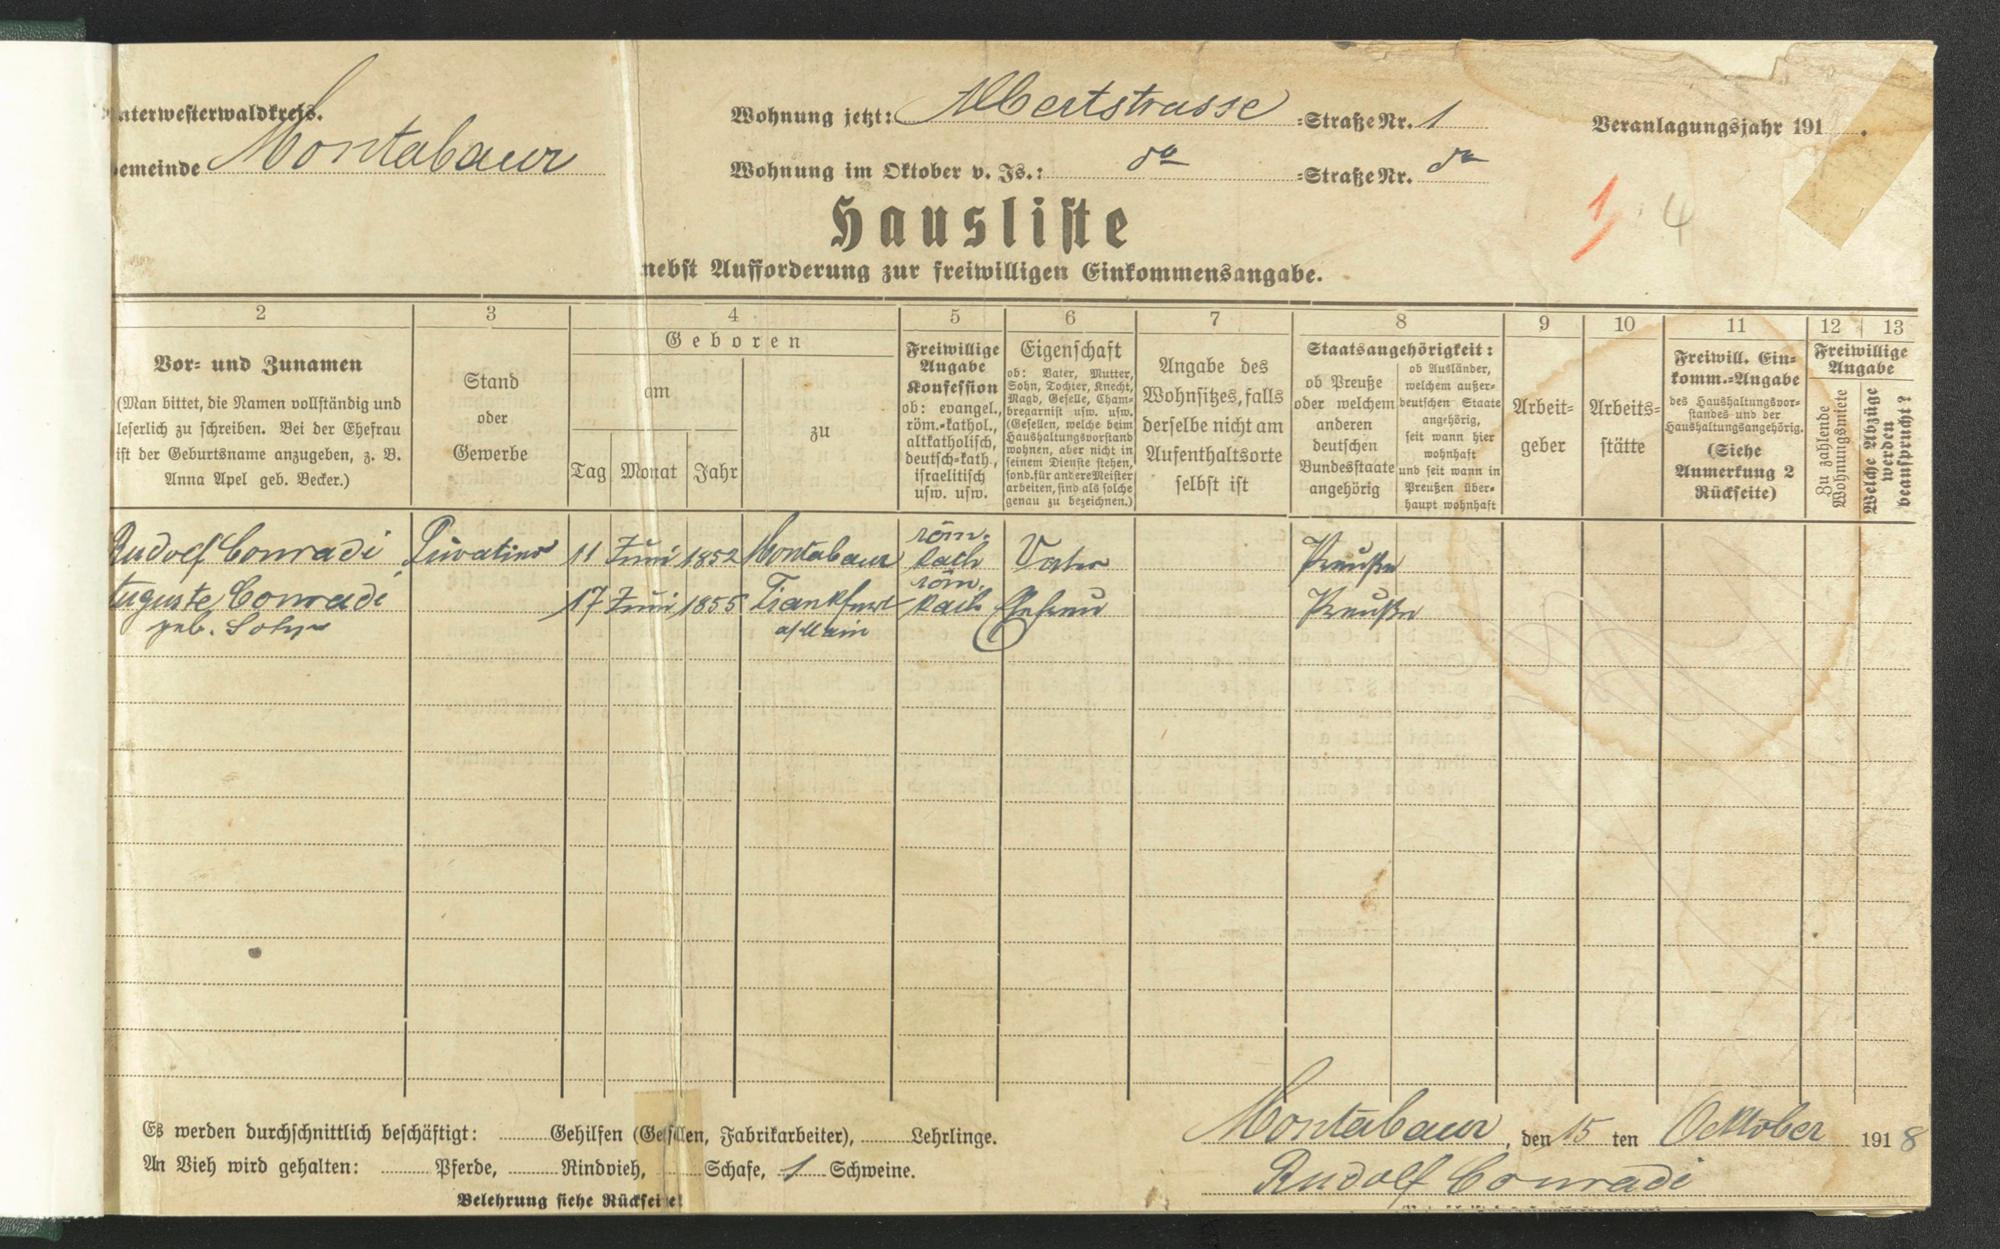 nterwesterwaldkreis.
emeinde Montabaur
Wohnung jetzt: Albertstrasse =Straße Nr. 1
Wohnung im Oktober v. Js.: do =Straße Nr. do
Veranlagungsjahr 191 .
1 4
Hausliste
nebst Aufforderung zur freiwilligen Einkommensangabe.
2 3 4 5 6 7 8 9 10 11 12 13
Vor= und Zunamen
(Man bittet, die Namen vollständig und
leserlich zu schreiben. Bei der Ehefrau
ist der Geburtsname anzugeben, z. B.
Anna Apel geb. Becker.)
Stand
oder
Gewerbe
Geboren
am
Tag Monat Jahr
zu
Freiwillige
Angabe
Konfession
ob: evangel.,
röm.=kathol.,
altkatholisch,
deutsch=kath.,
israelitisch
usw. usw.
Eigenschaft
ob: Vater, Mutter,
Sohn, Tochter, Knecht,
Magd, Geselle, Cham=
bregarnist usw. usw.
(Gesellen, welche beim
Haushaltungsvorstand
wohnen, aber nicht in
seinem Dienste stehen,
sond. für andere Meister
arbeiten, sind als solche
genau zu bezeichnen.)
Angabe des
Wohnsitzes, falls
derselbe nicht am
Aufenthaltsorte
selbst ist
Staatsangehörigkeit:
ob Preuße
oder welchem
anderen
deutschen
Bundesstaate
angehörig
ob Ausländer,
welchem außer=
deutschen Staate
angehörig,
seit wann hier
wohnhaft
und seit wann in
Preußen über=
haupt wohnhaft
Arbeit=
geber
Arbeits=
stätte
Freiwill. Ein=
komm.=Angabe
des Haushaltungsvor=
standes und der
Haushaltungsangehörig.
(Siehe
Anmerkung 2
Rückseite)
Freiwillige
Angabe
Zu zahlende
Wohnungsmiete
Welche Abzüge
werden
beansprucht?
Rudolf Conradi Privatier 11 Juni 1852 Montabaur röm. kath Vater Preuße
Auguste Conradi 17 Juni 1855 Frankfurt röm. kath Ehefrau Preuße
geb. a/Main
Es werden durchschnittlich beschäftigt: Gehilfen (Gesellen, Fabrikarbeiter), Lehrlinge.
An Vieh wird gehalten: Pferde, Rindvieh, Schafe, 1 Schweine.
Belehrung siehe Rückseite!
Montabaur, den 15 ten Oktober 1918
Rudolf Conradi